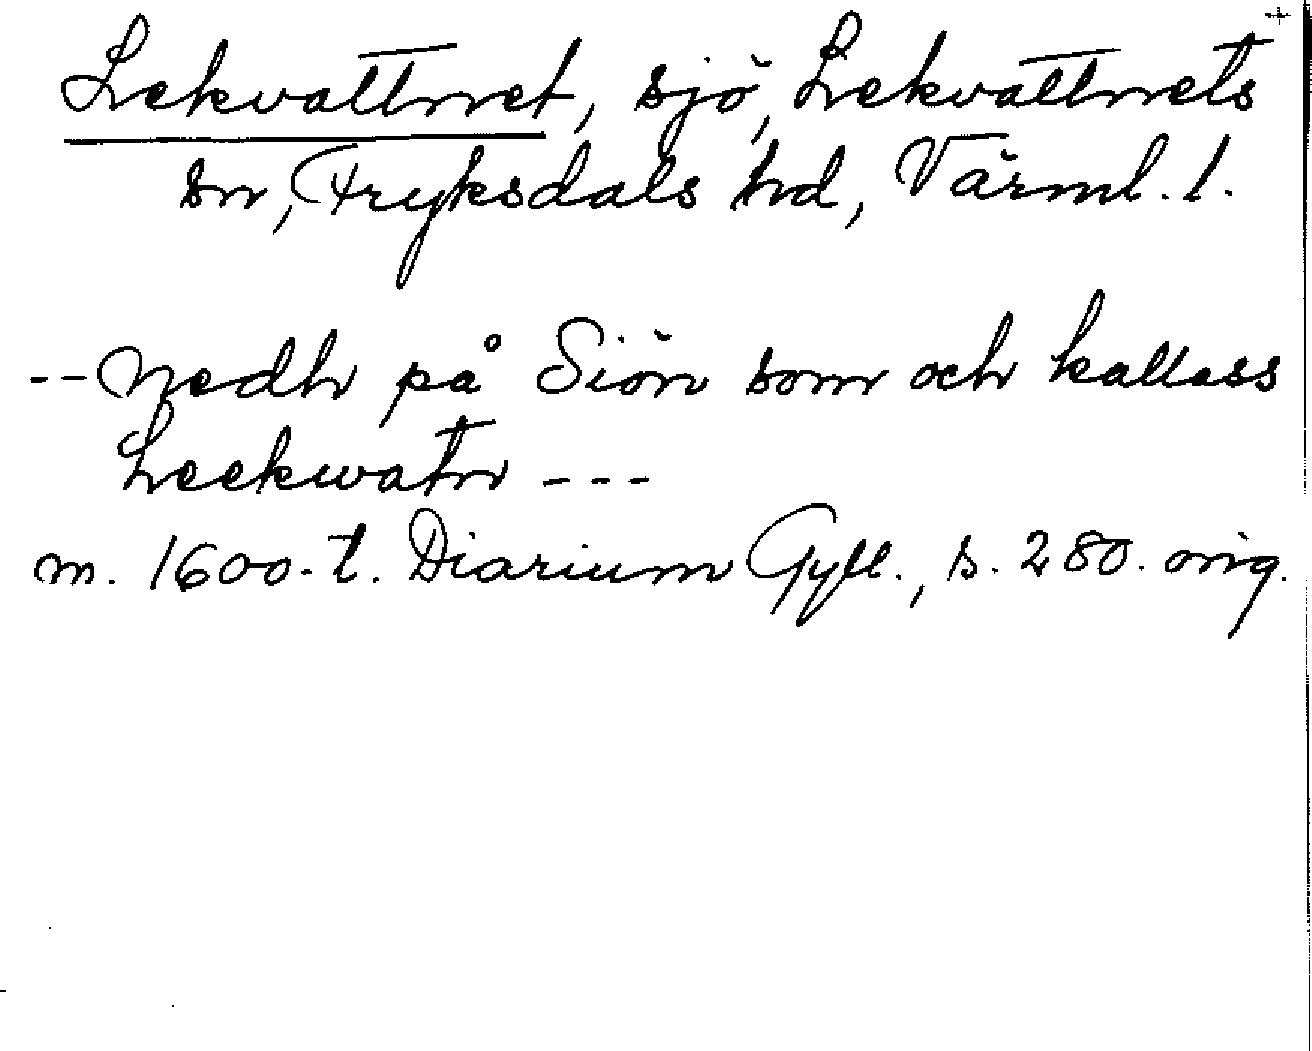 +
Lekvattnet, sjö, Lekvattnets
sn, Fryksdals hd, Värml. l.
-- Nedh på Siön som och kallass
Leekwatn ---
m. 1600-t. Diarium Gyll., s. 280. orig.